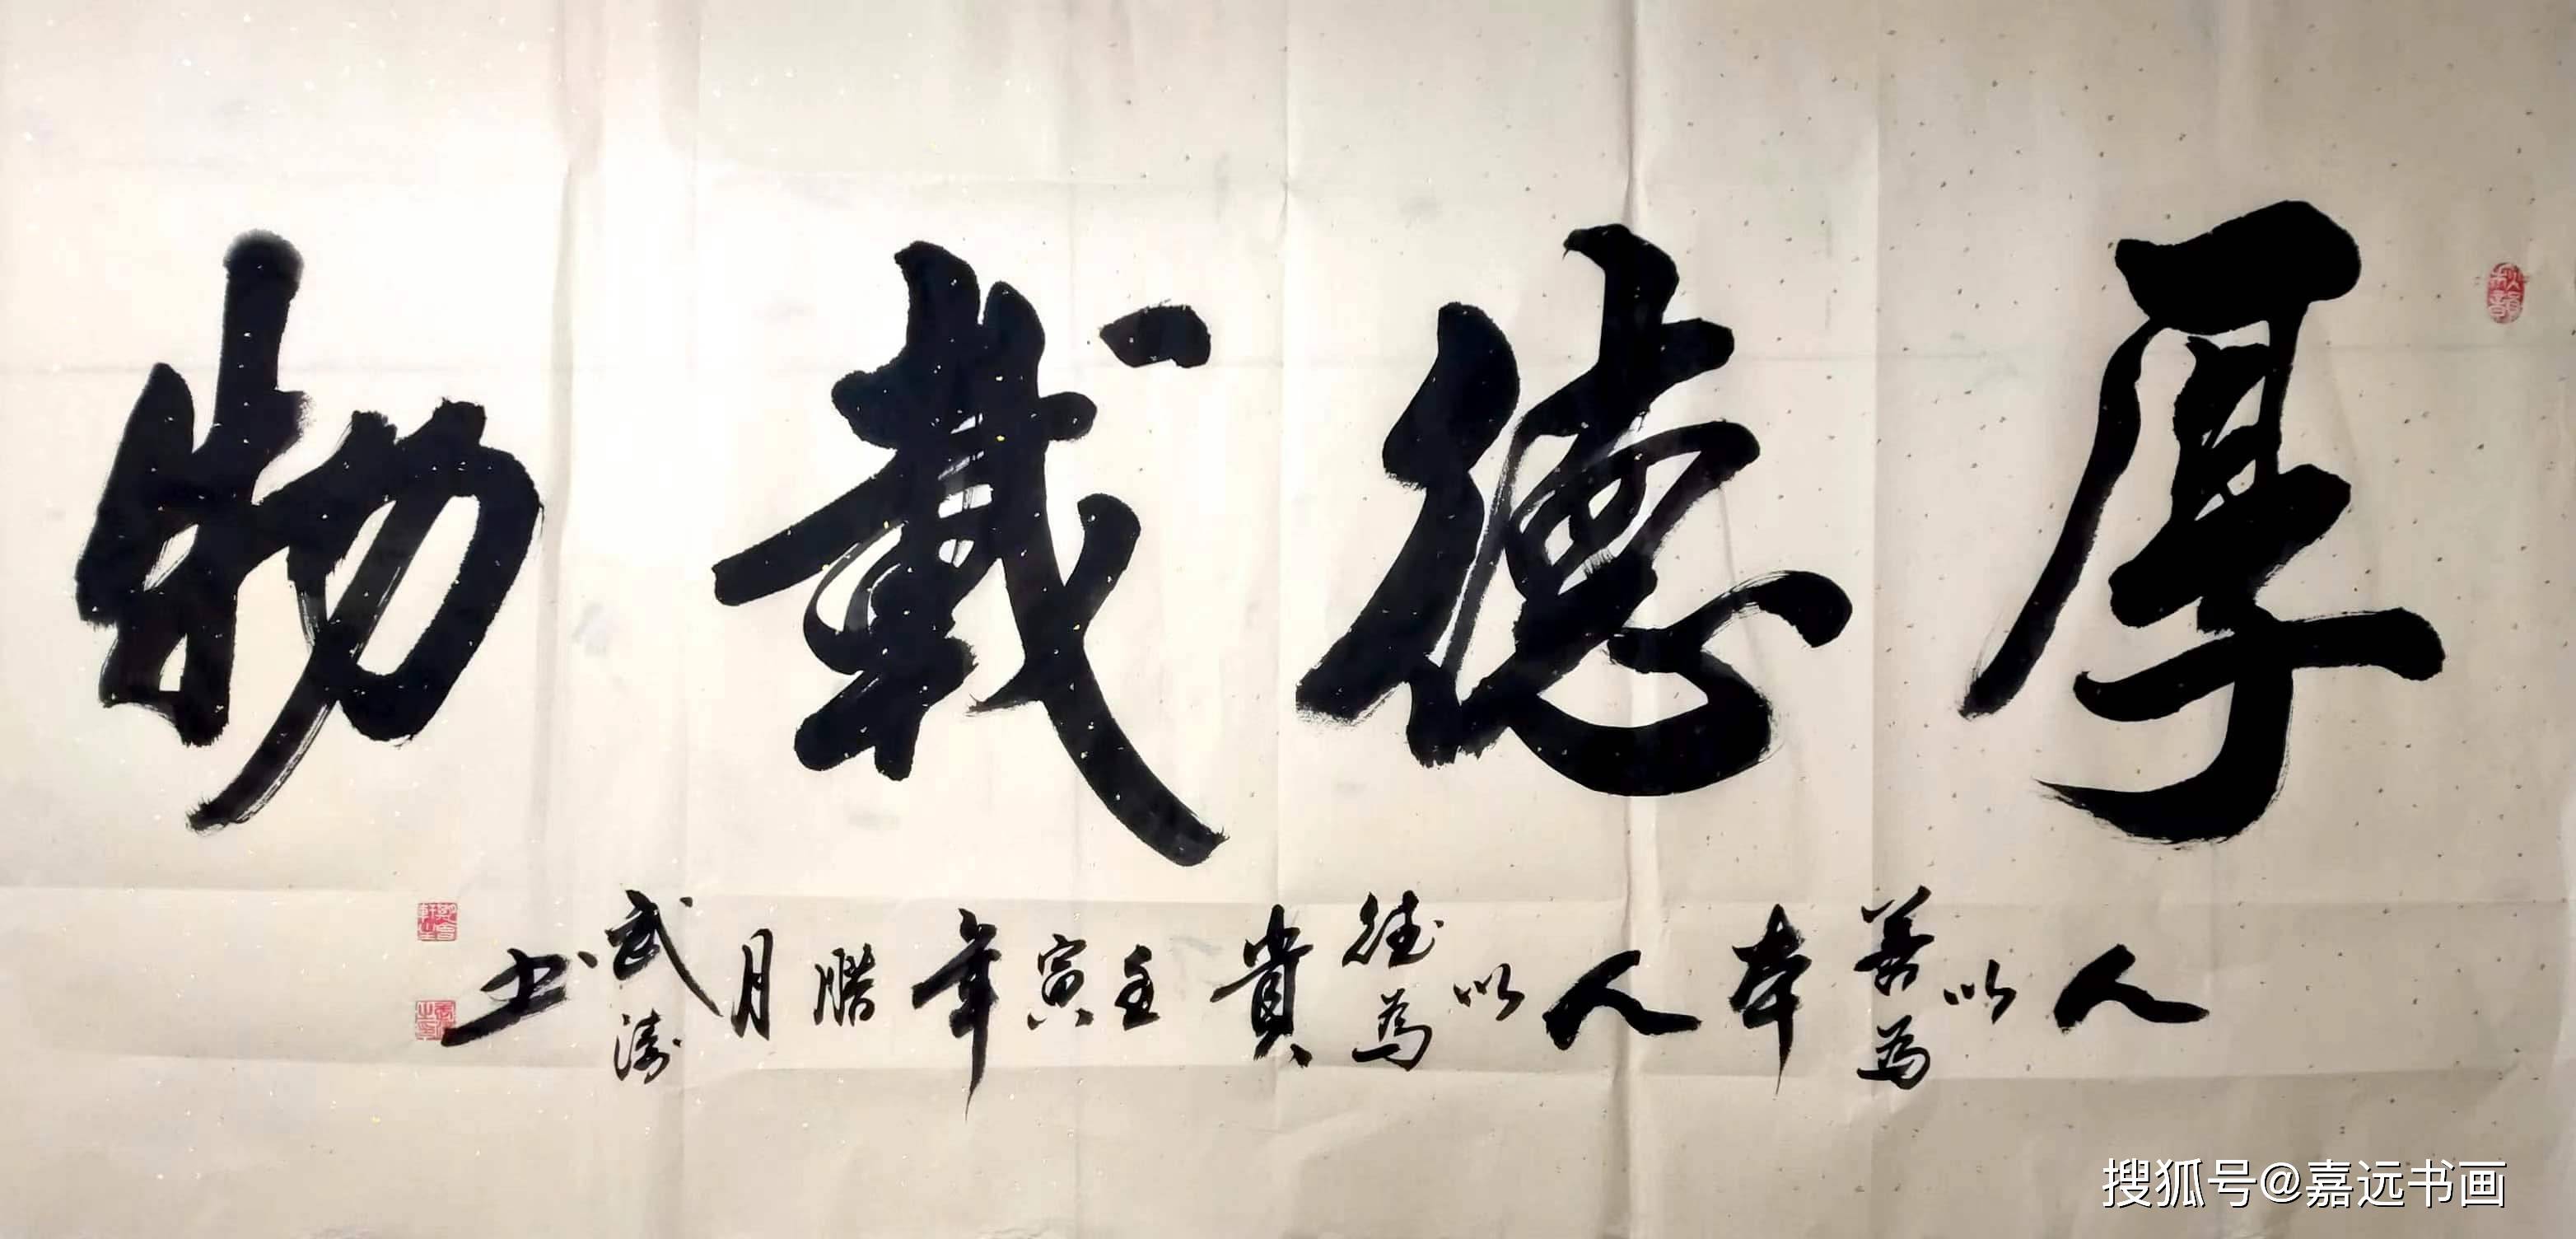 厚德載物
人以善為本人以德為貴壬寅年腊月武濤书
搜狐号@嘉远书画